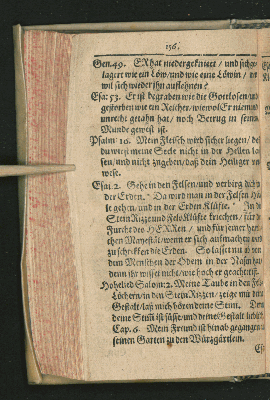 136.
Gen. 49. ERhat niedergekniet / und sich
lagert wie ein Löw / und wie eine Löwin /
wil sich wieder ihn auflehnen?
Esa: 53. Er ist begraben wie die Gottlosen / und
gestorben wie ein Reicher / wiewol Er niemand
unrecht getahn hat / noch Betrug in seinem
Munde gewest ist.
Psalm 16. Mein Fleisch wird sicher liegen /
du wirst meine Seele nicht in der Hellen
sen / und nicht zugeben / daß dein Heiliger
wese.
Esai. 2. Gehe in den Felsen / und verbirg dich
der Erden. * Da wird man in der Felsen
le gehen / und in der Erden Klüfte. * In
SteinRitze und FelsKlüfte kriechen / für
Furcht des HERRen / und für seiner
chen Magestät / wenn er sich aufmachen
zu schrekken die Erden. So lasset nu
dem Menschen der Odem in der Nasen
denn ihr wisset nicht / wie hoch er geachtet ist.
Hohelied Salom: 2. Meine Taube in den Fels
Löchern / in den SteinRitzen / zeige mir deine
Gestalt / laß mich hören deine Stim / Denn
deine Stim ist süsse / und deine Gestalt lieblich
Cap. 6. Mein Freund ist hinab gegangen
seinen Garten zu den Würtzgärtlein.